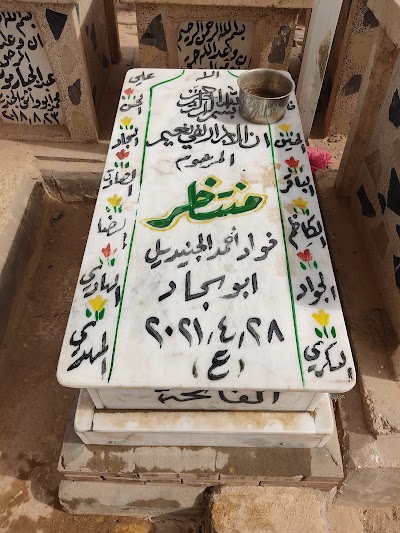 الله
علي
بسم الله الرحمن الرحيم
ان الابرار لفي نعيم
المرحوم
منتظر
فواد أحمد الجنديل
ابو سجاد
٢٠٢١.٤.٢٨
(ع)
الفاتحة
الحسين
الباقر
الكاظم
الجواد
العسكري
الحسن
السجاد
الصادق
الرضا
الهادي
المهدي
بسم الله الرحمن الرحيم